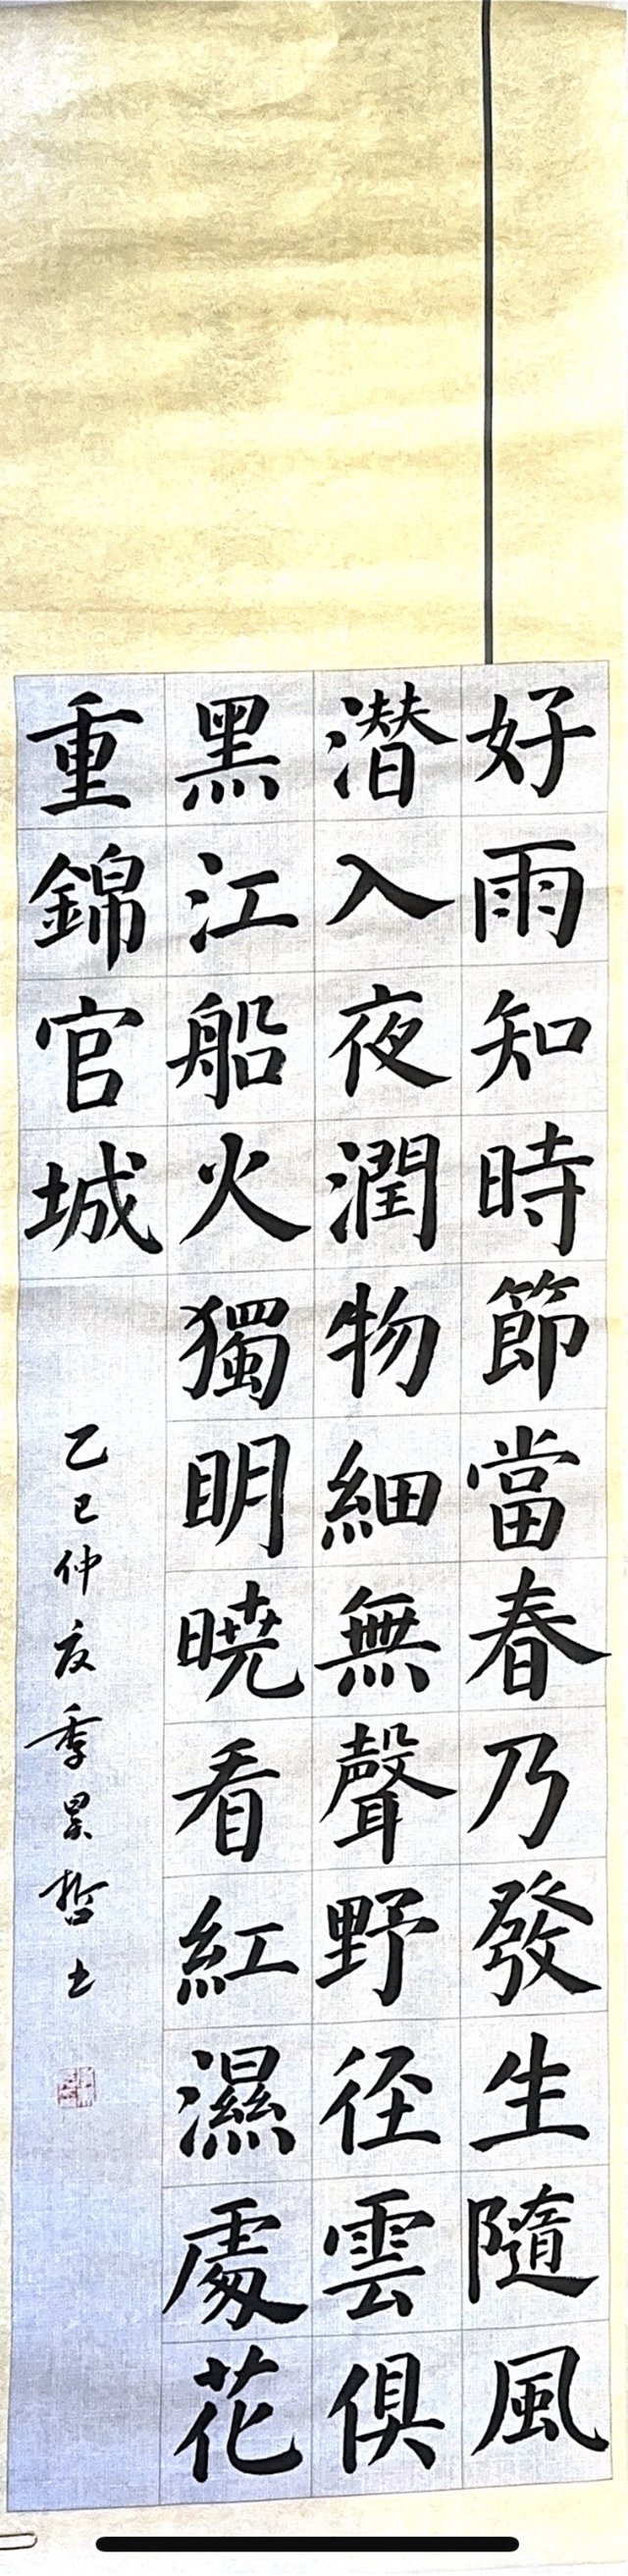 好雨知時節當春乃發生隨風
潛入夜潤物細無聲野径雲俱
黑江船火獨明曉看紅濕處花
重錦官城
乙巳仲夜季昊哲士